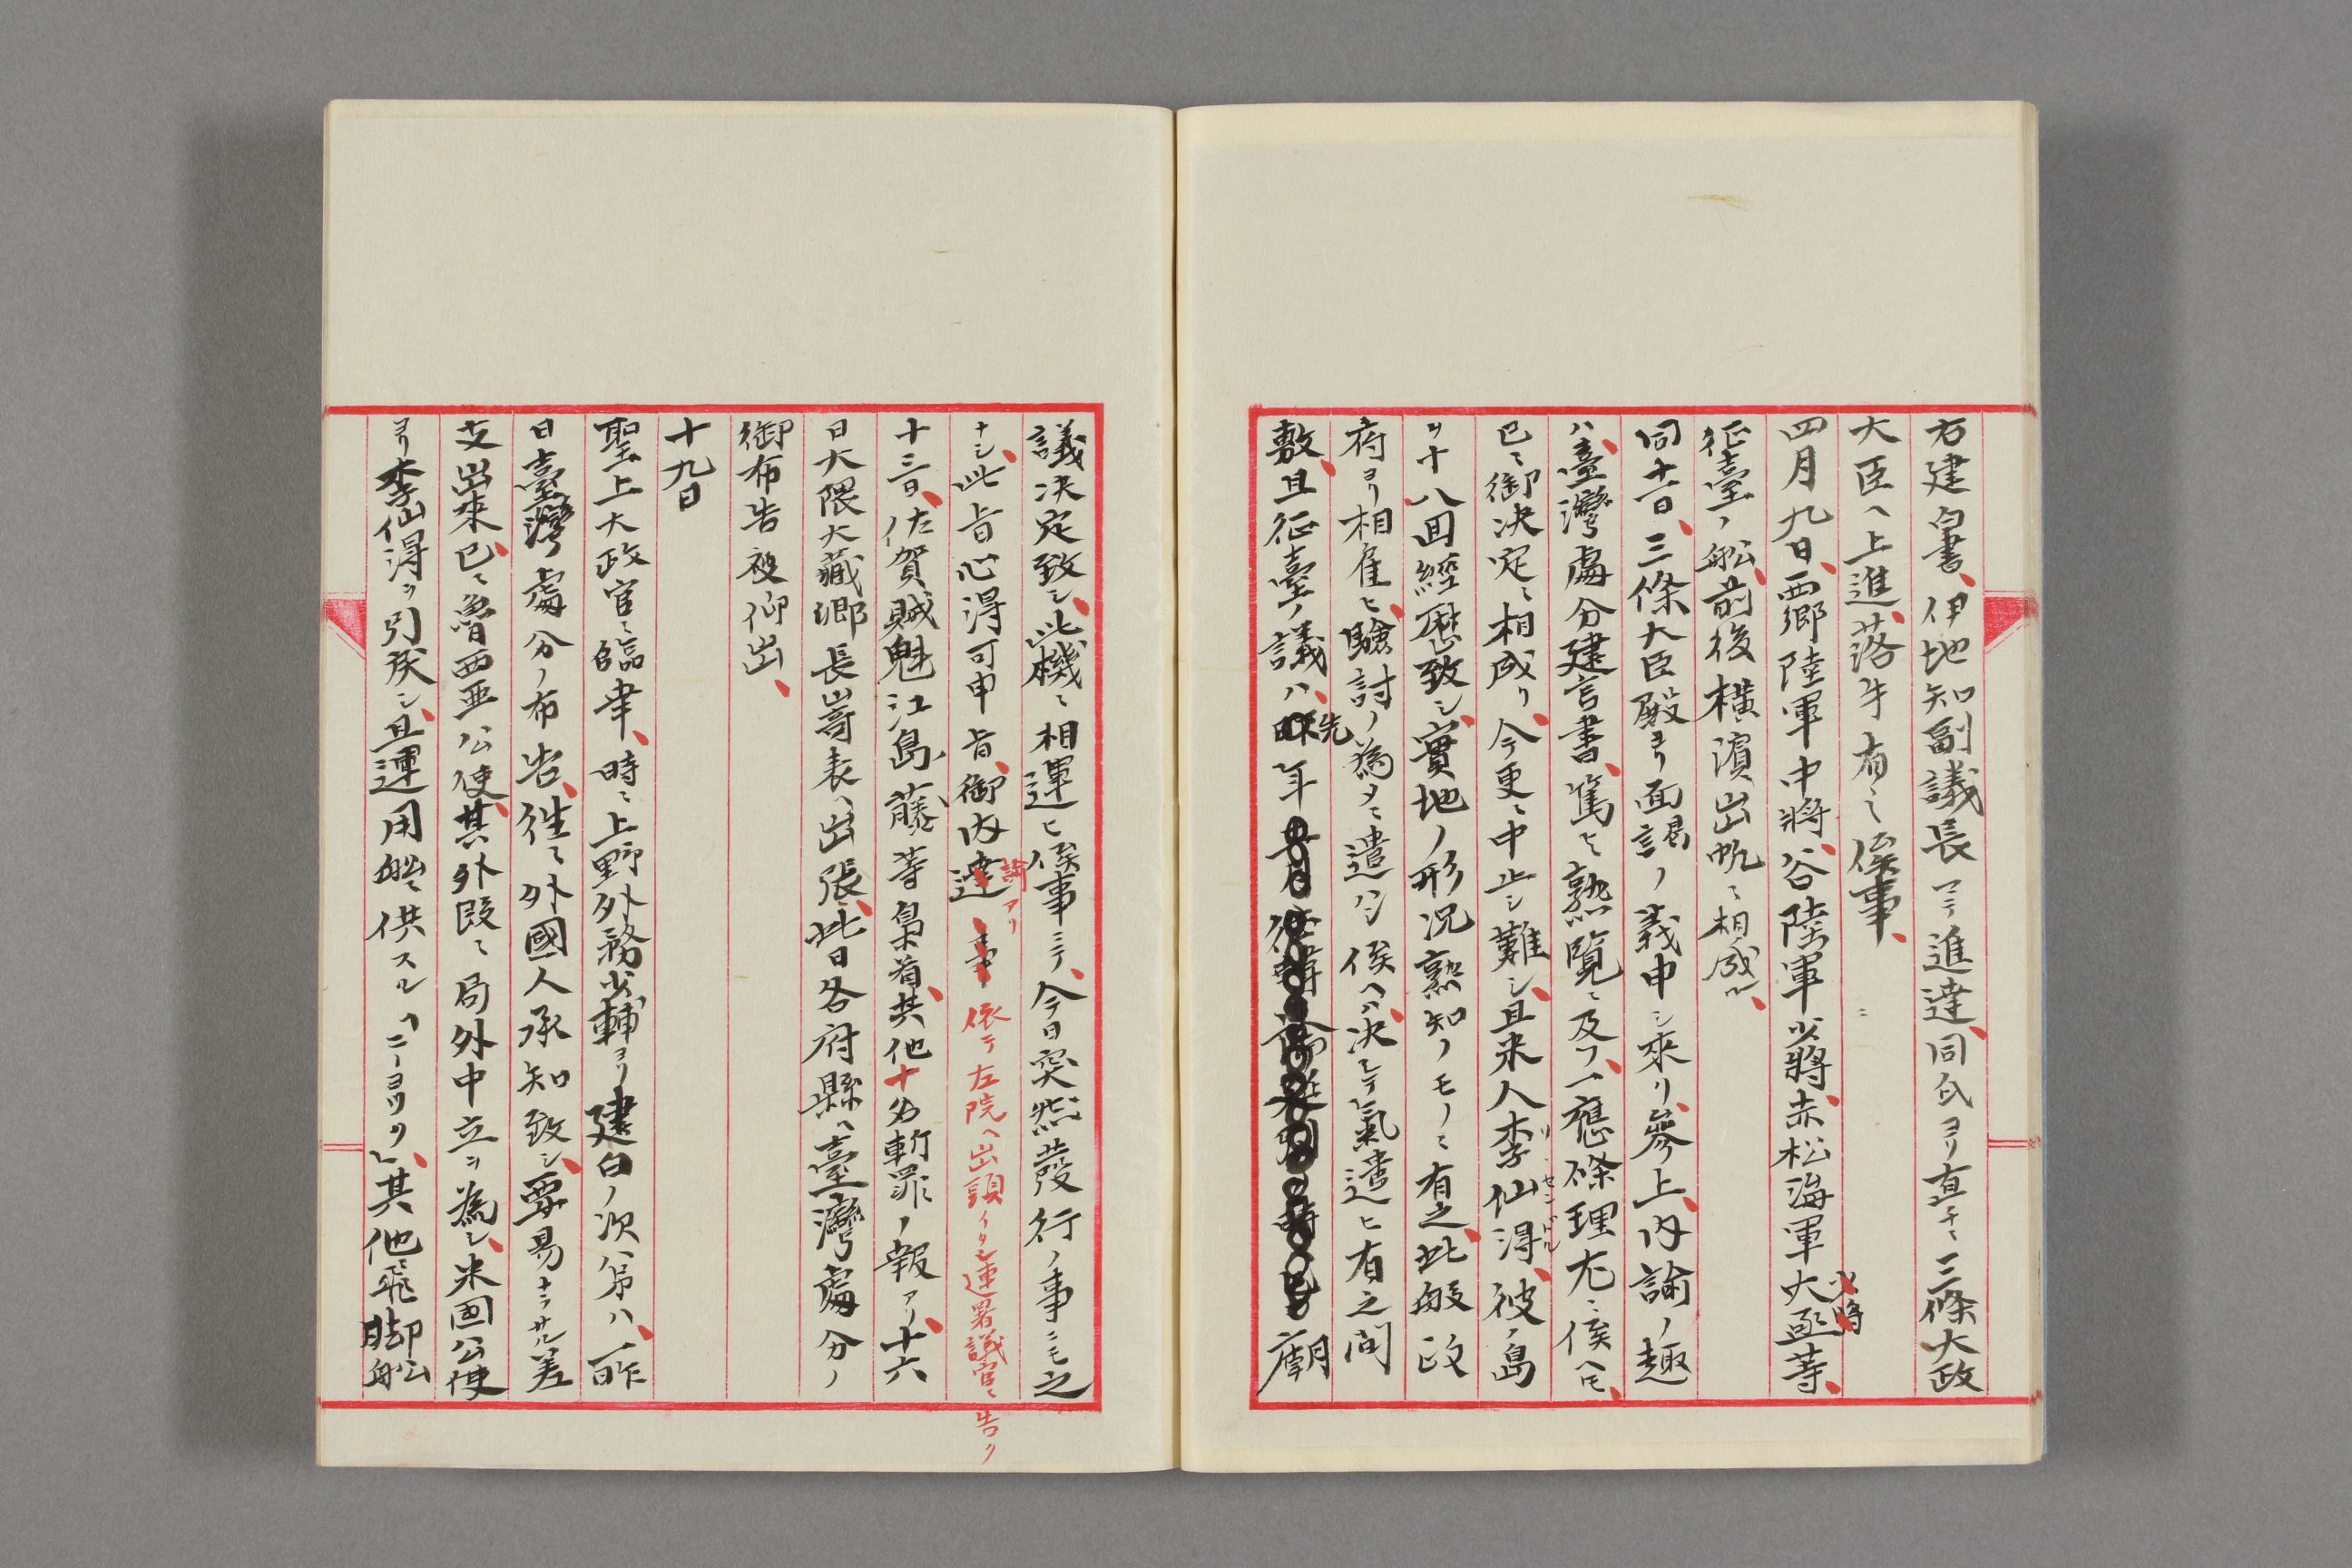 右建白書、伊地知副議長ニテ進達、同氏ヨリ直チニ三條大政
大臣ヘ上進、落手有之候事、
四月九日、西郷陸軍中將、谷陸軍少將、赤松海軍大丞等、
少將
征臺ノ舩、前後横濱出帆ニ相成ル、
同十一日、三條大臣殿ヨリ面謁ノ義申シ來リ、參上、内諭ノ趣
ハ、臺灣處分建言書、篤ト熟覧ニ及フ、一應條理尤ニ候ヘ𪜈、
已ニ御决定ニ相成リ、今更ニ中止シ難シ、且米人李仙得、彼ノ島
リ センドル
ヲ十八回經歴致シ、實地ノ形况熟知ノモノニ有之、此般政
府ヨリ相雇ヒ、驗討ノ為メニ遣ハシ候ヘハ、决シテ氣遣ヒ有之間
敷、且征臺ノ議ハ、先年
廟
議决定致シ、此機ニ相運ヒ候事ニテ、今日突然發行ノ事ニモ之
ナシ、此旨心得可申旨、御内諭アリ
依テ左院ヘ出頭イタシ連署議官ニ告ク
十三日、佐賀賊魁江島藤等梟首、其他十名斬罪ノ報アリ、十六
日大隈大藏卿長嵜表ヘ出張、此日各府縣ヘ臺灣處分ノ
御布告被仰出、
十九日
聖上大政官ニ臨聿、時ニ上野外務少輔ヨリ建白ノ次第ハ、一昨
日臺灣處分ノ布告、往々外國人承知致シ、要易ナラサル差
支出來、已ニ魯西亜公使、其外段々局外中立ヲ為シ、米國公使
ヨリ李仙得ヲ引戻シ、且運用舩ニ供スル「ニーヨツク」、其他飛脚舩